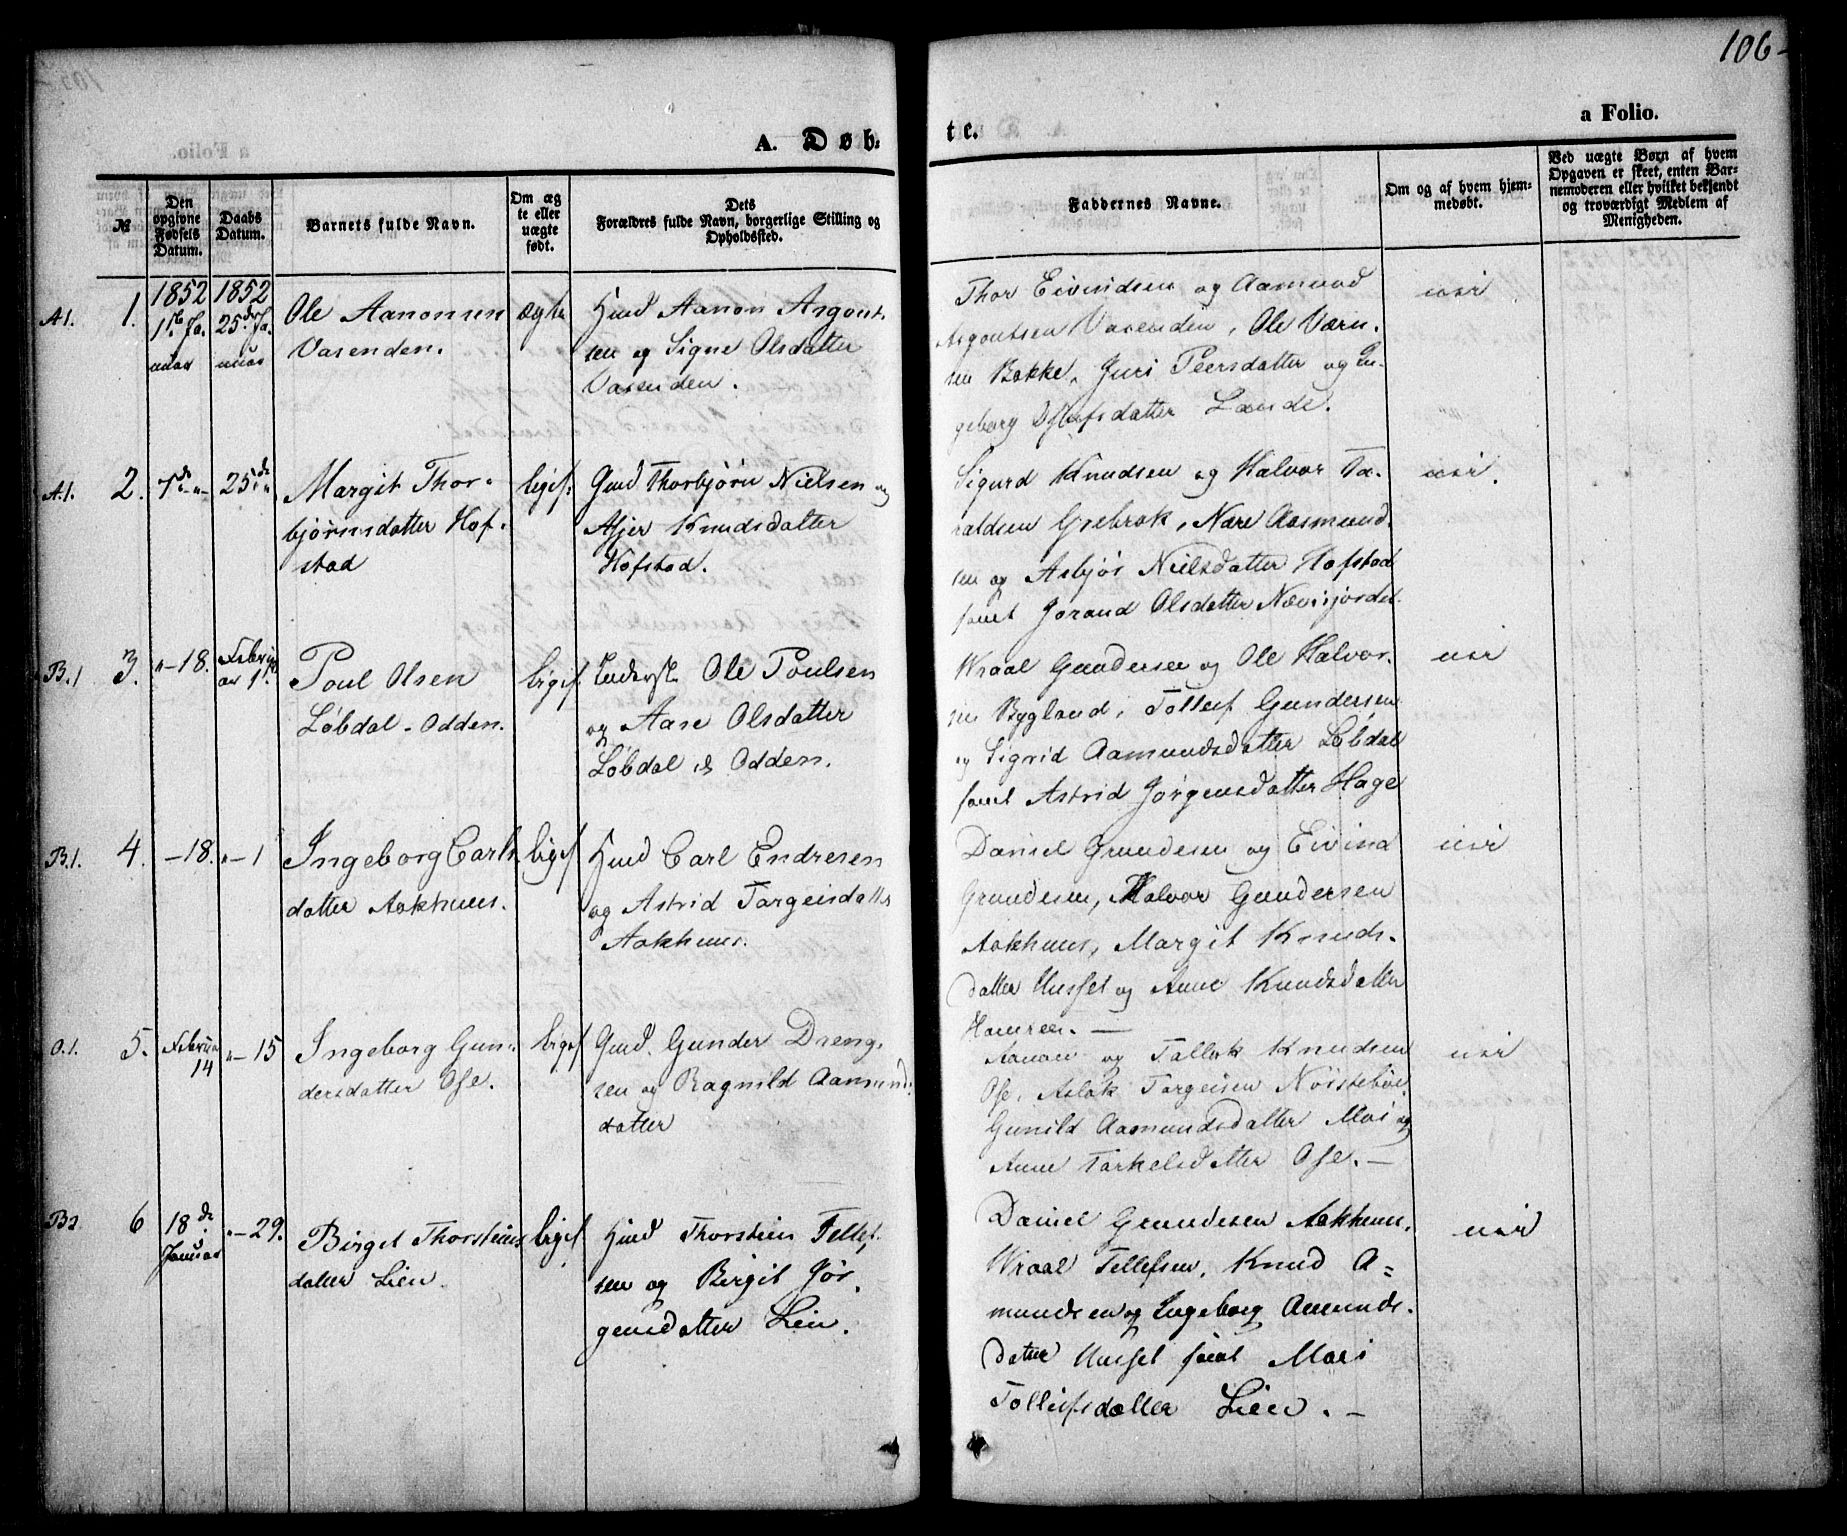 106-
a Folio.
A. Døb-
te.
№
Den opgivne Fødsels Datum.
Daabs Datum.
Barnets fulde Navn.
Om ægte eller uægte født.
Dets Forældres fulde Navn, borgerlige Stilling og Opholdssted.
Faddernes Navne.
Om og af hvem hjemmedøbt.
Ved uægte Børn af hvem Opgaven er skeet, enten Barnemoderen eller hvilket bekjendt og troværdigt Medlem af Menigheden.
A1. 1. 1852 1852
Ole Aanonsen
Vasenden.
ægte
Aanon Asgout-
sen og Signe Olsdatter
Vasenden.
Thor Eivindsen og Aamund
Asgoutsen Vasenden, Ole
sen Bakke, Juri Peersdatter og In-
geborg Lande.
A.1. 2. 25de
Margit Thor-
bjørnsdatter Hof-
stad
liges.
Gmd Thorbjørn Nielsen og
Asjer Knudsdatter
Hofstad.
Sigurd Knudsen og Halvor Ta-
raldsen Grebrok, Nære Aasmund-
sen og Asbjør Nielsdatter Hofstad
samt Jorand Olsdatter
B.1 3. "-18. Februar 1.
Poul Olsen
Løbdal-Odden.
ligef.
Ole Poulsen
og Aase Olsdatter
Løbdal Odden.
Wraal Gundersen og Ole Halvor-
sen Bygland, Tollef Gundersen
og Sigrid Aamundsdatter Løbdal
samt Astrid Jørgensdatter Hage
B.1. 4. -18. "-1
Ingeborg Carls
datter Aakhuus.
ligef
Carl Endresen
og Astrid Targeisdatter
Aakhuus.
Daniel Grundesen og Eivind
Grundesen, Halvor Gundersen
Aakhuus, Margit Knuds-
datter Husset og Anne Knudsdatter
Hamren. —
O.1. 5. Februar 14 "-15
Ingeborg Gun-
dersdatter Ose.
ligef
Gmd. Gunder Dreng-
sen og Ragnild Aamunds-
datter
Aanon og Tallak Knudsen
Ose, Aslak Targeisen Nøistebøe
Gunild Aamundsdatter Moi og
Anne Tarkelsdatter Ose. —
B2. 6 18de Januar "-29.
Birget Thorsteins
datter Lien.
ligef.
Thorstein Tellef-
sen og Birgit Jør-
gensdatter Lien.
Daniel Grundesen Aakhuus,
Wraal Tellefsen, Knud A=
mundsen og Ingeborg Amunds-
datter Husset samt Mari
Tollefsdatter Lien. —